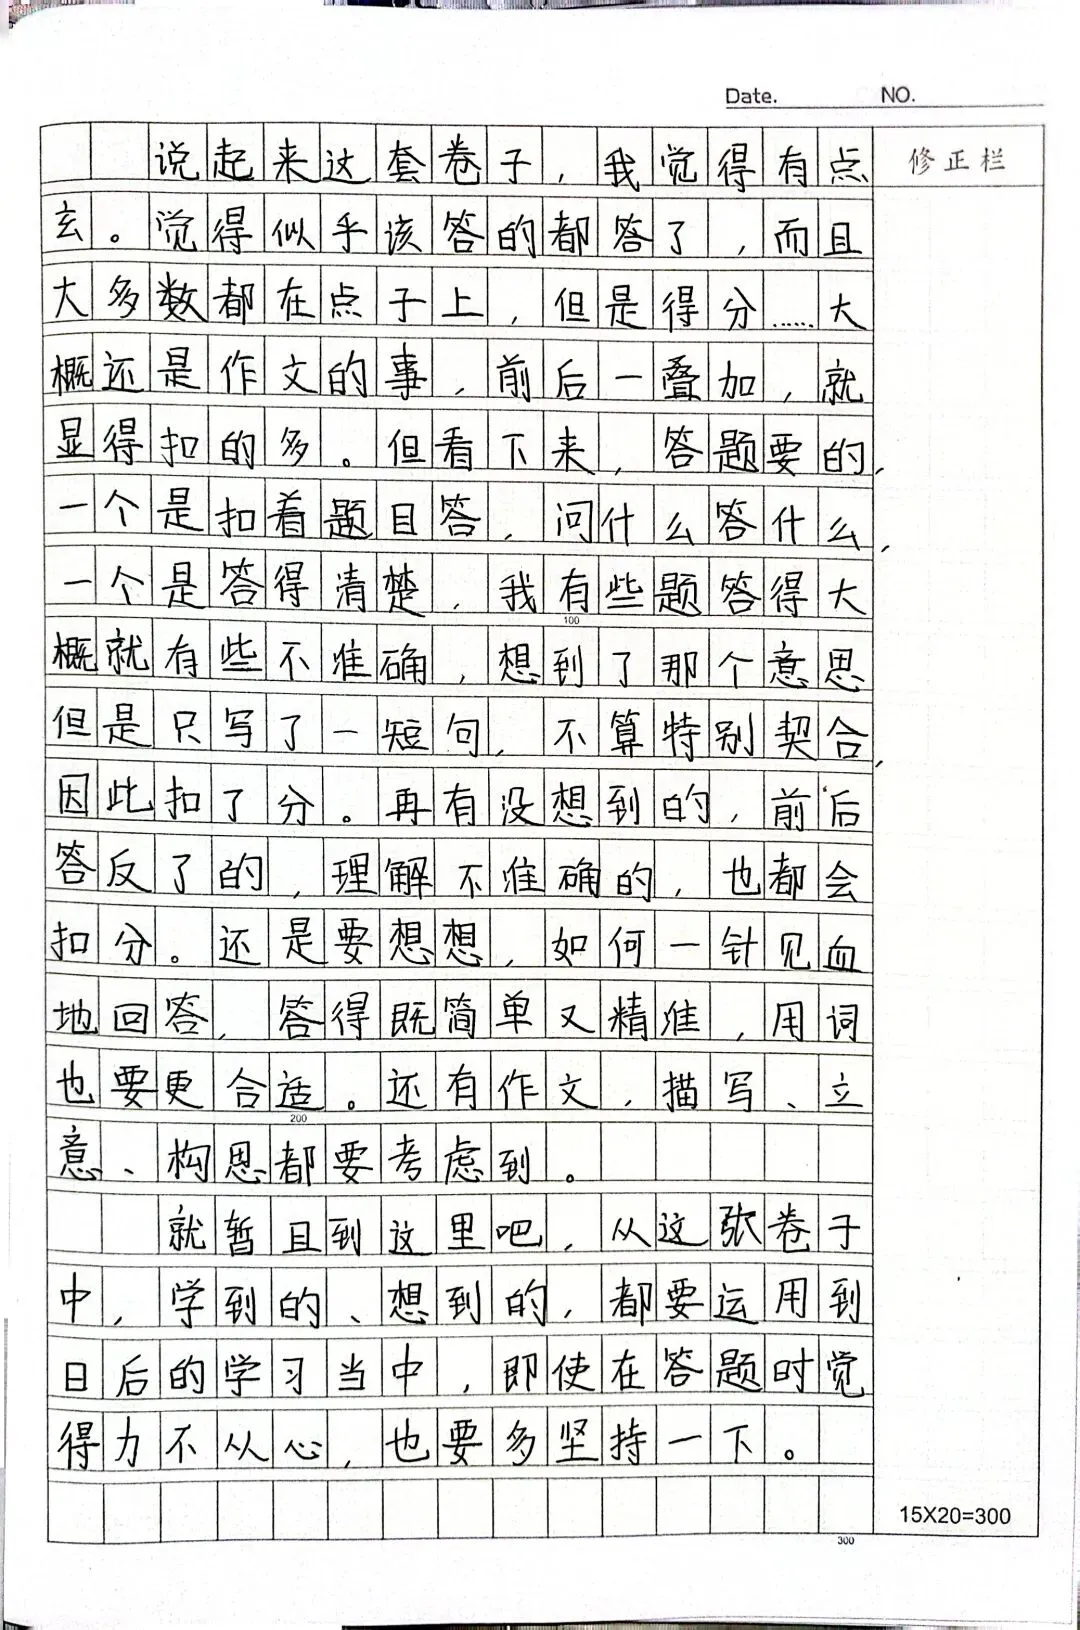 Date. NO.
修正栏
说起来这套卷子，我觉得有点
玄。觉得似乎该答的都答了，而且
大多数都在点子上，但是得分……大
概还是作文的事，前后一叠加，就
显得扣的多。但看下来，答题要的，
一个是扣着题目答，问什么答什么，
一个是答得清楚，我有些题答得大
100
概就有些不准确，想到了那个意思
但是只写了一短句，不算特别契合，
因此扣了分。再有没想到的，前后
答反了的，理解不准确的，也都会
扣分。还是要想想，如何一针见血
地回答，答得既简单又精准，用词
也要更合适。还有作文，描写、立
200
意、构思都要考虑到。
就暂且到这里吧，从这张卷子
中，学到的、想到的，都要运用到
日后的学习当中，即使在答题时觉
得力不从心，也要多坚持一下。
15X20=300
300